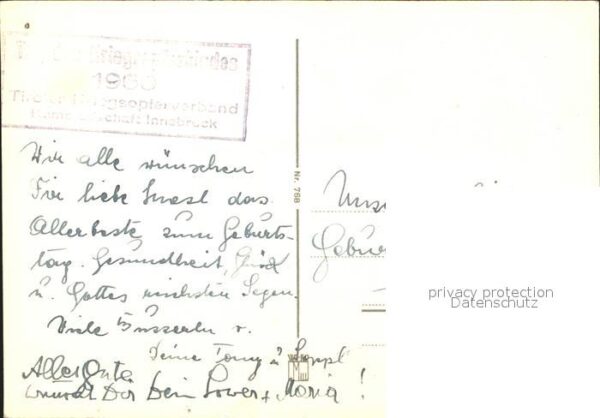 1960
Tiroler Kriegsopferverband
Innsbruck
Wir alle wünschen
Dir liebe das
Allerbeste zum Geburts-
tag. Gesundheit, Glück
u. Gottes reichsten Segen.
Viele Busserln v.
Deine Tony u.
Alles Gute
wünscht Dir Dein + Maria!
Nr. 768
privacy protection
Datenschutz